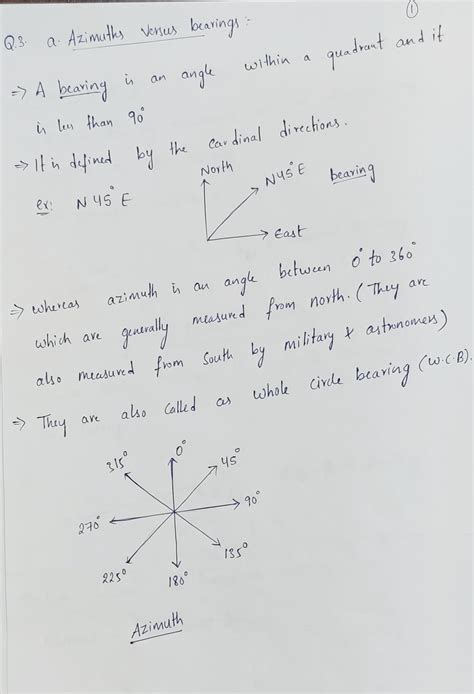 ①
Q.3. a. Azimuths versus bearings :-
=> A bearing is an angle within a quadrant and it
is less than 90°
=> It is defined by the cardinal directions.
ex: N 45° E
North
N45°E bearing
East
=> whereas azimuth is an angle between 0° to 360°
which are generally measured from north. (They are
also measured from South by military & astronomers)
=> They are also called as whole circle bearing (W.C.B).
0°
45°
90°
135°
180°
225°
270°
315°
Azimuth